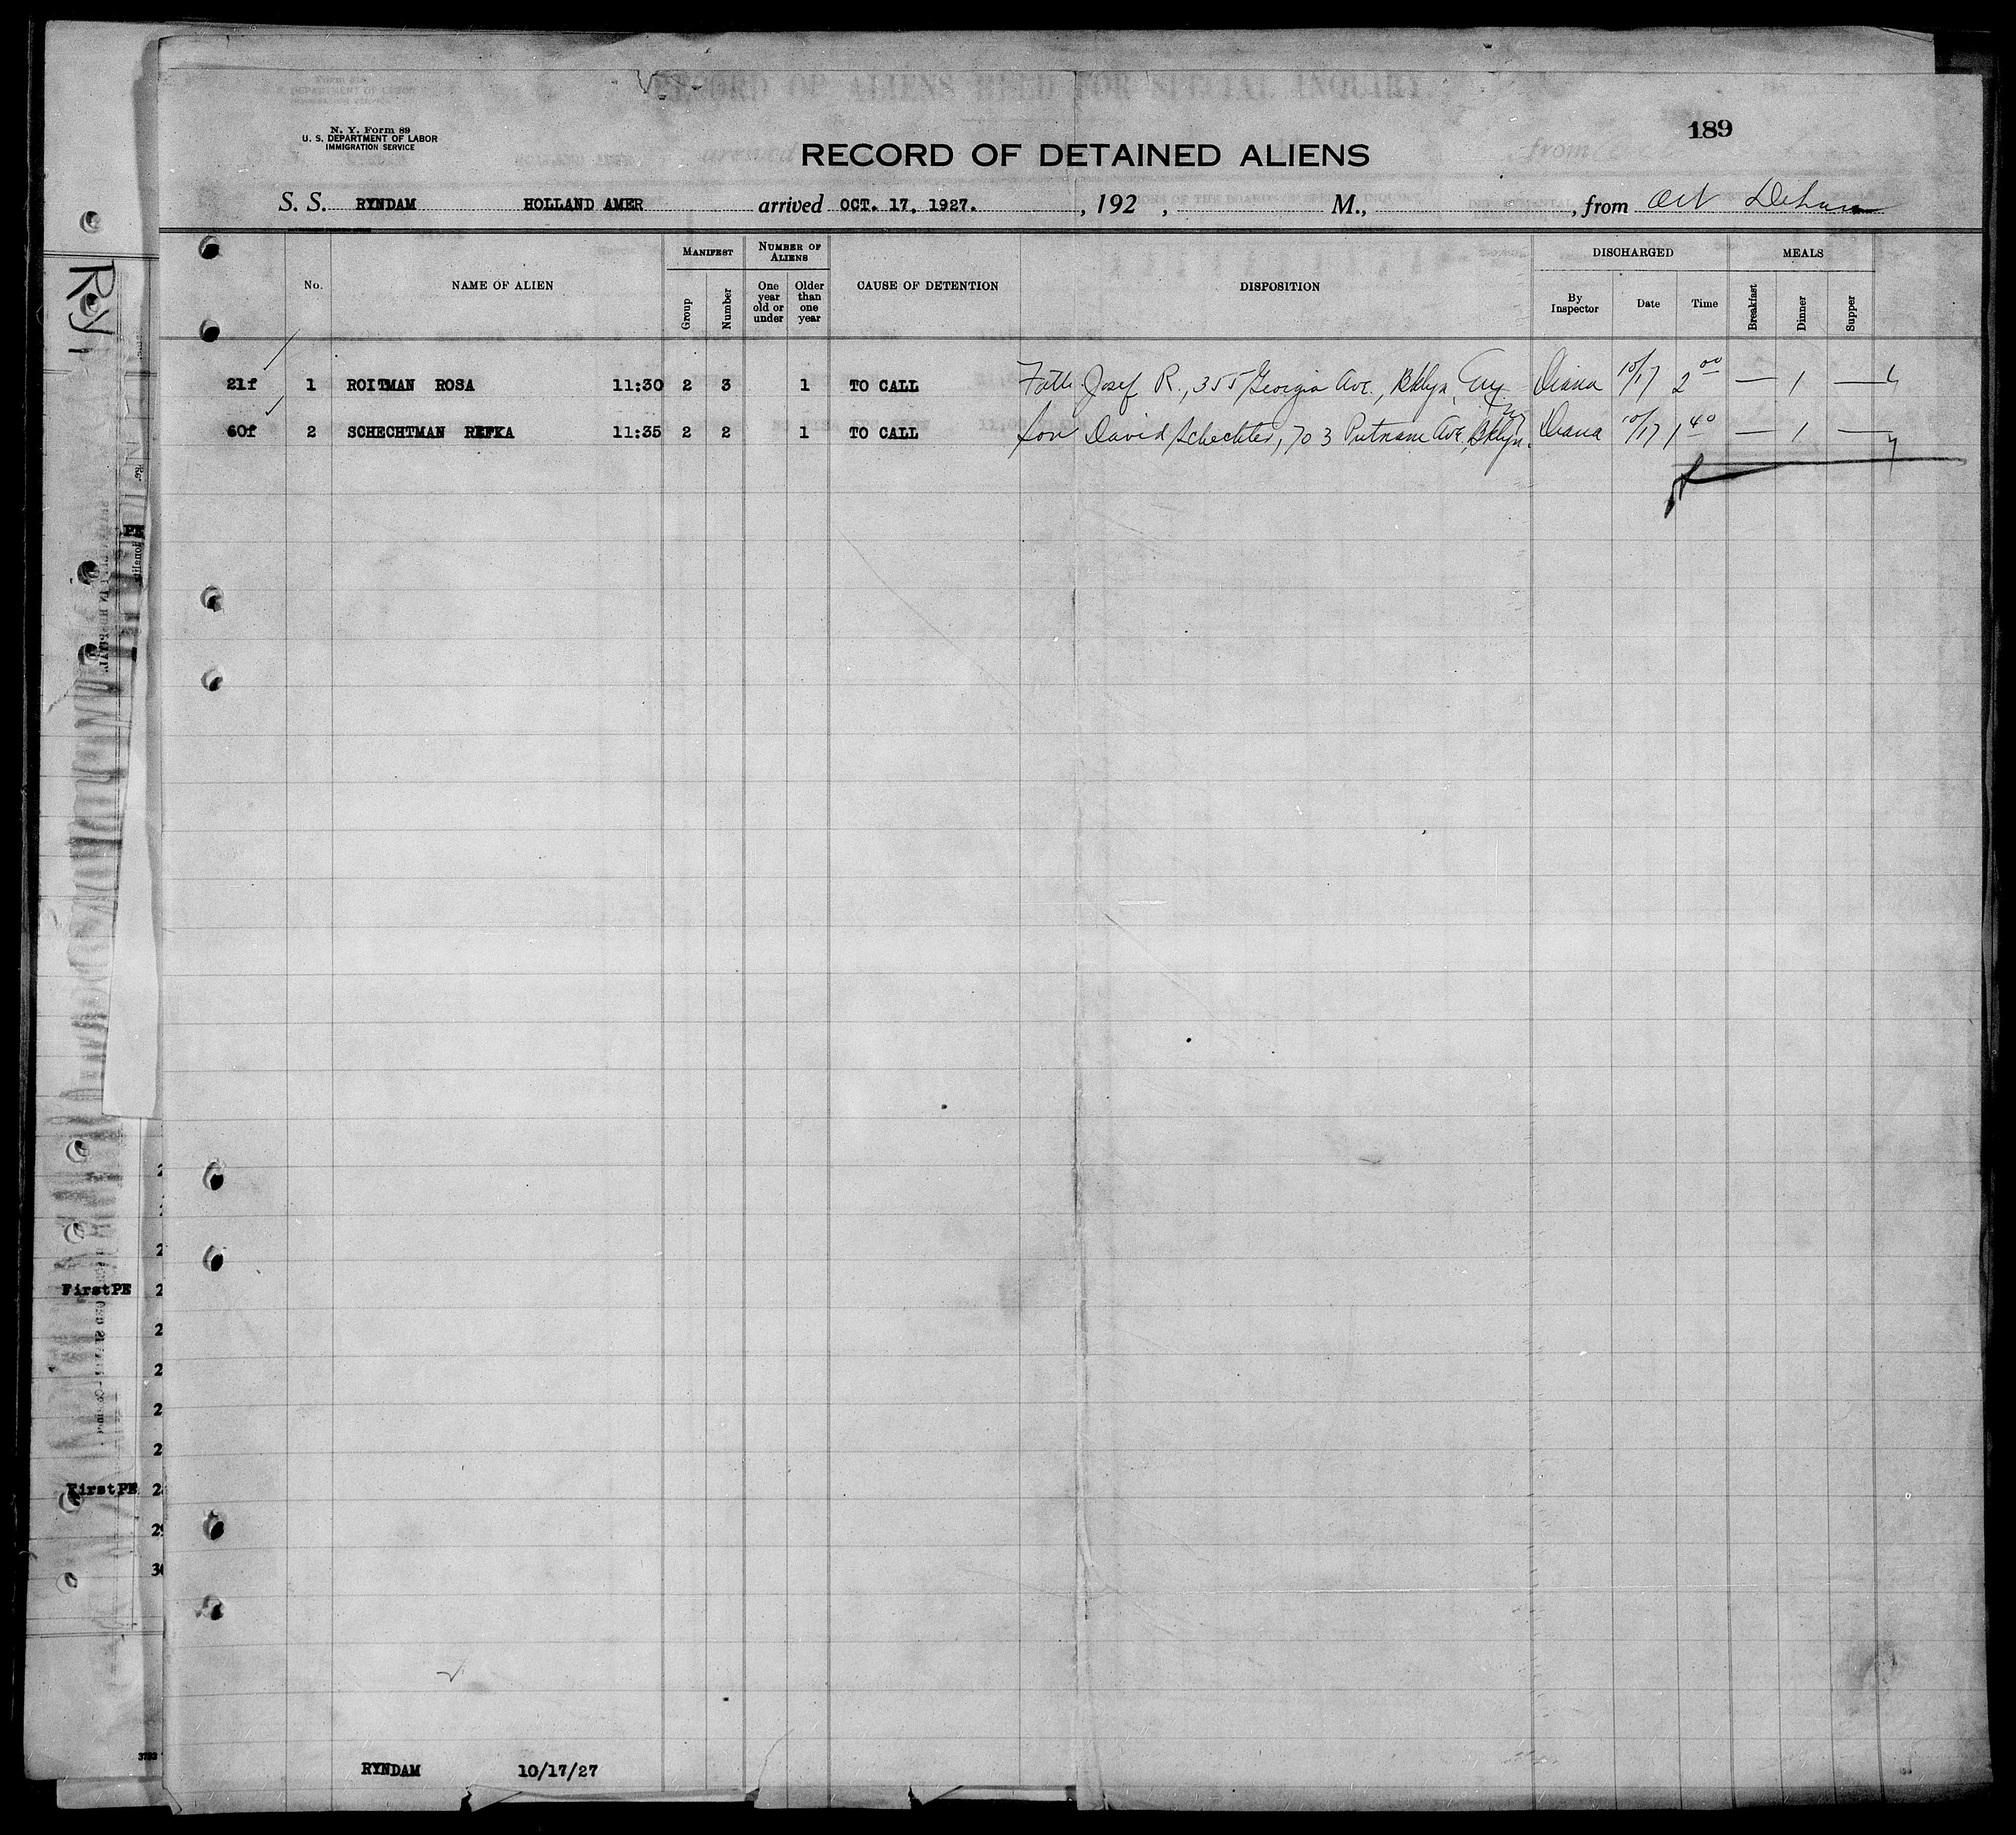 N. Y. Form 89
U. S. DEPARTMENT OF LABOR
IMMIGRATION SERVICE
189
RECORD OF DETAINED ALIENS
S. S. RYNDAM HOLLAND AMER arrived OCT. 17, 1927. , 192 , M., , from
No. NAME OF ALIEN MANIFEST Group Number NUMBER OF ALIENS One year old or under Older than one year CAUSE OF DETENTION DISPOSITION DISCHARGED By Inspector Date Time MEALS Breakfast Dinner Supper
21f 1 ROITMAN ROSA 11:30 2 3 1 TO CALL Fath Josef R., 355 Georgia Ave., Bklyn, Diana 10/17 2 00 — 1 —
60f 2 SCHECHTMAN REFKA 11:35 2 2 1 TO CALL Son David Schechter, 703 Putnam Ave, Bklyn. NY Diana 10/17 1 40 — 1 —
Ry
First PE
First PE
29
RYNDAM 10/17/27